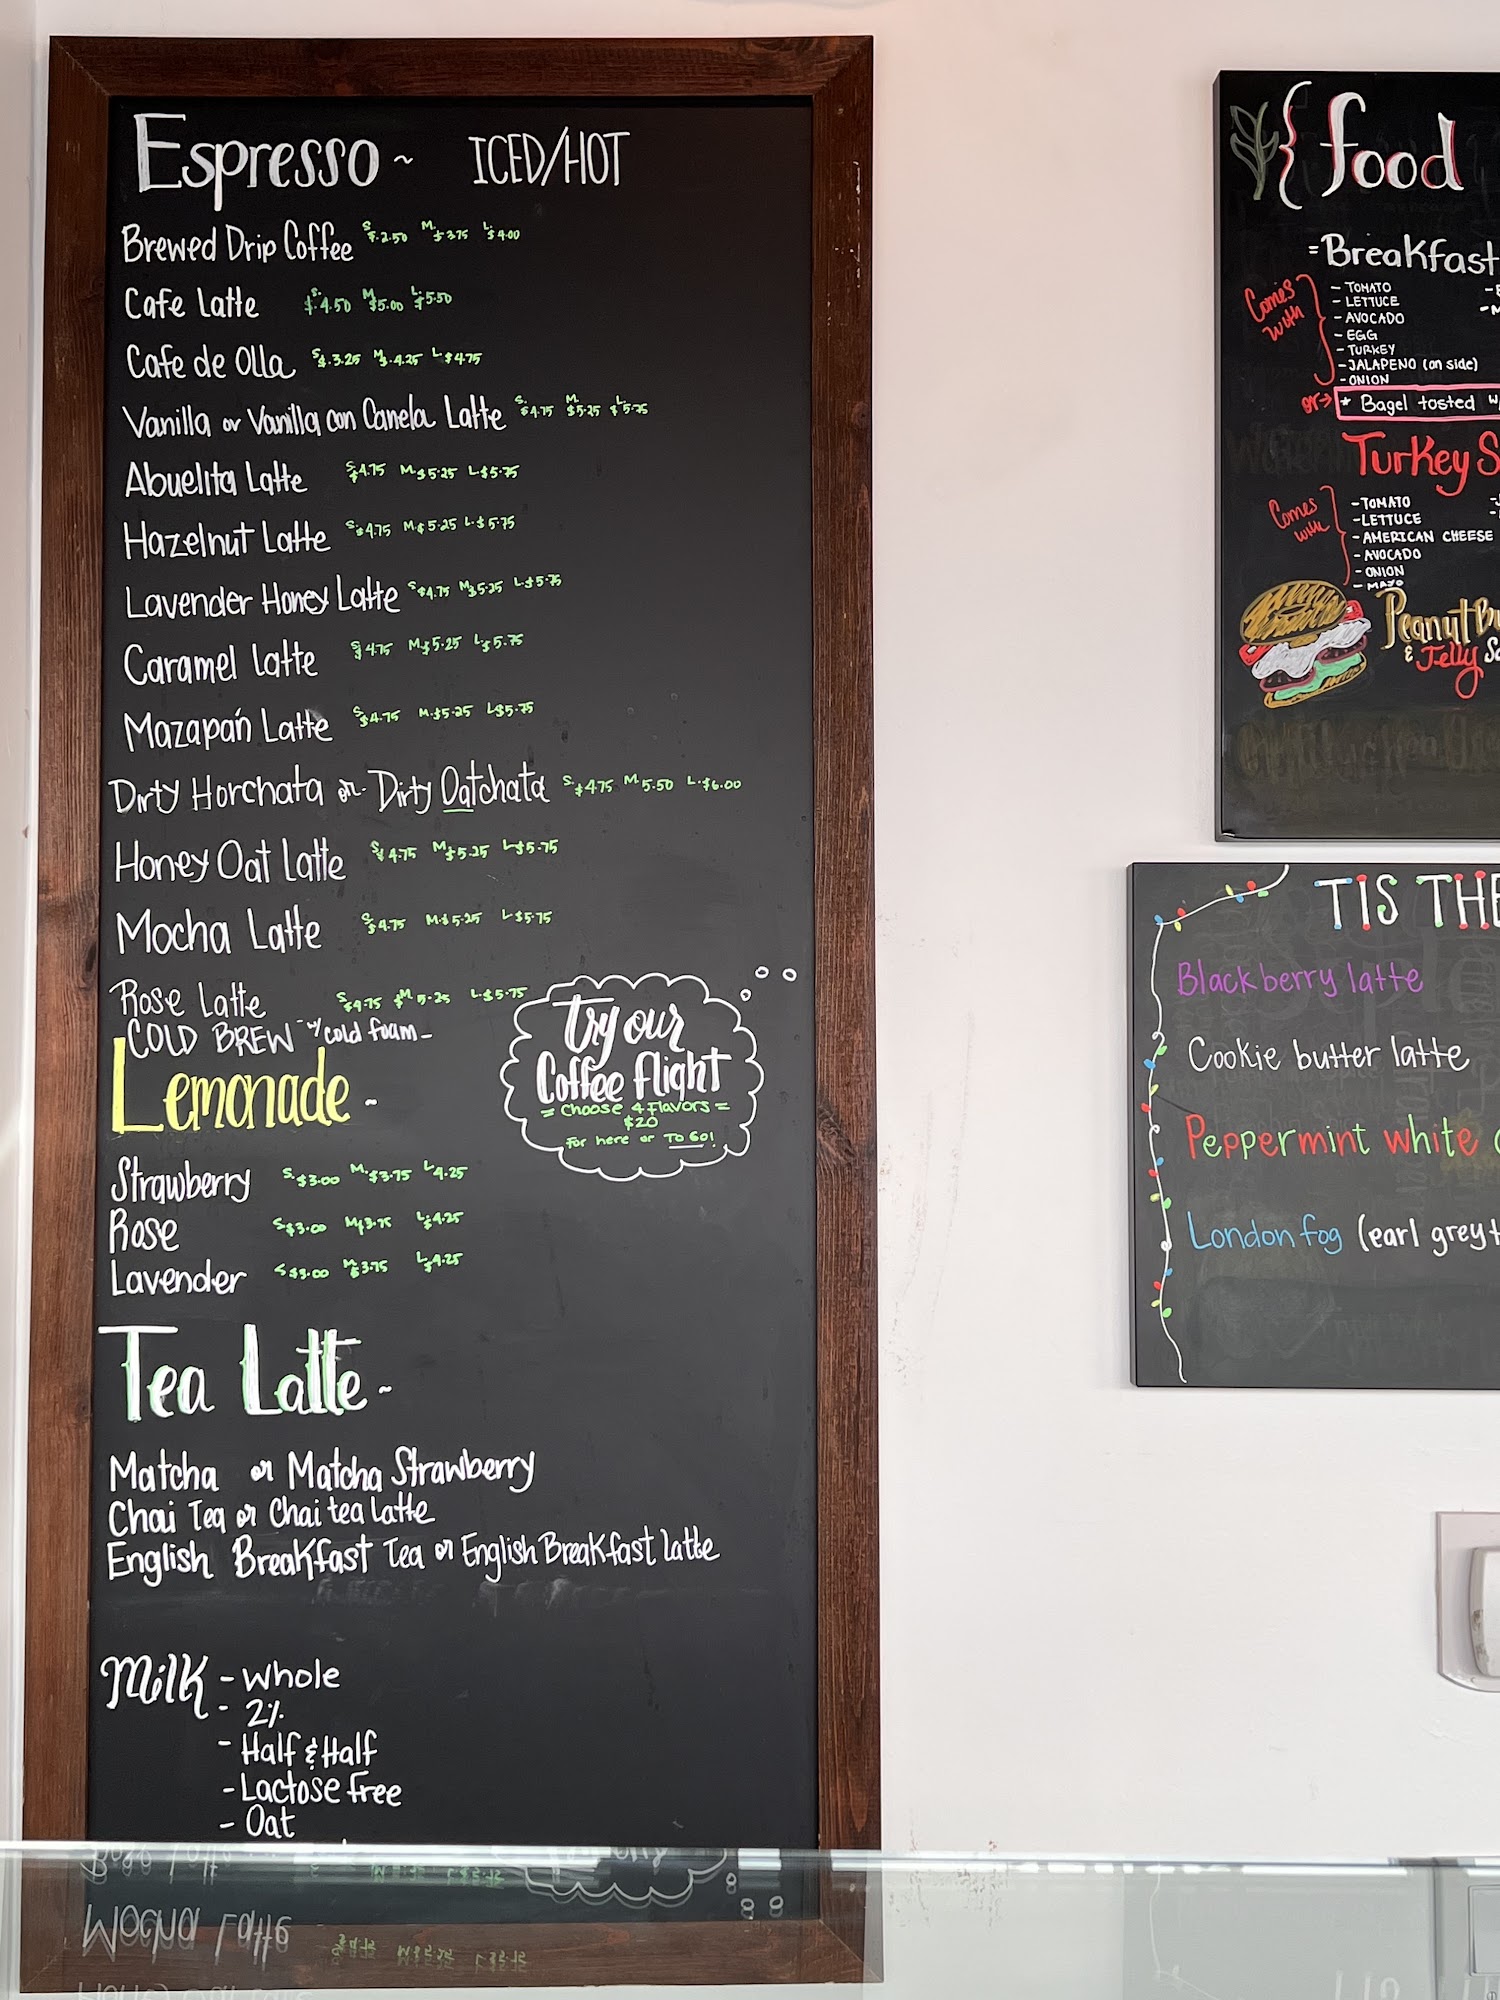 Espresso ~ ICED/HOT
Brewed Drip Coffee S. $.2.50 M. $3.75 L. $4.00
Cafe Latte S. $.4.50 M. $5.00 L. $5.50
Cafe de Olla S. $.3.25 M. $.4.25 L. $4.75
Vanilla or Vanilla con Canela Latte S. $4.75 M. $5.25 L. $5.75
Abuelita Latte S. $4.75 M. $5.25 L. $5.75
Hazelnut Latte S. $4.75 M. $5.25 L. $5.75
Lavender Honey Latte S. $4.75 M. $5.25 L. $5.75
Caramel Latte S. $4.75 M. $5.25 L. $5.75
Mazapań Latte S. $4.75 M. $5.25 L. $5.75
Dirty Horchata or Dirty Oatchata S. $4.75 M. 5.50 L. $6.00
Honey Oat Latte S. $4.75 M. $5.25 L. $5.75
Mocha Latte S. $4.75 M. $5.25 L. $5.75
Rose Latte S. $4.75 $M. 5.25 L. $5.75
COLD BREW - w/ cold foam -
Try our
Coffee flight
= Choose 4 flavors =
$20
For here or TO GO!
Lemonade ~
Strawberry S. $3.00 M. $3.75 L 4.25
Rose S. $3.00 M. $3.75 L. $4.25
Lavender S $3.00 M. $3.75 L. $4.25
Tea Latte ~
Matcha or Matcha Strawberry
Chai Tea or Chai tea latte
English Breakfast Tea or English Breakfast latte
Milk - Whole
- 2%
- Half & Half
- Lactose free
- Oat
{ food
= Breakfast
Comes with
- TOMATO
- LETTUCE
- AVOCADO
- EGG
- TURKEY
- JALAPENO (on side)
- ONION
or → * Bagel tosted
Turkey
Comes with
- TOMATO
- LETTUCE
- AMERICAN CHEESE
- AVOCADO
- ONION
- MAYO
Peanut
& Jelly
TIS THE
Blackberry latte
Cookie butter latte
Peppermint white
London fog (earl grey